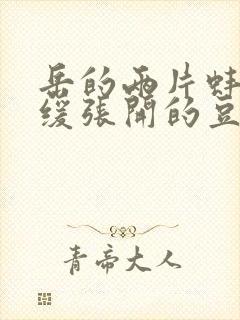 岳的两片蚌
缓张开的豆
青帝大人